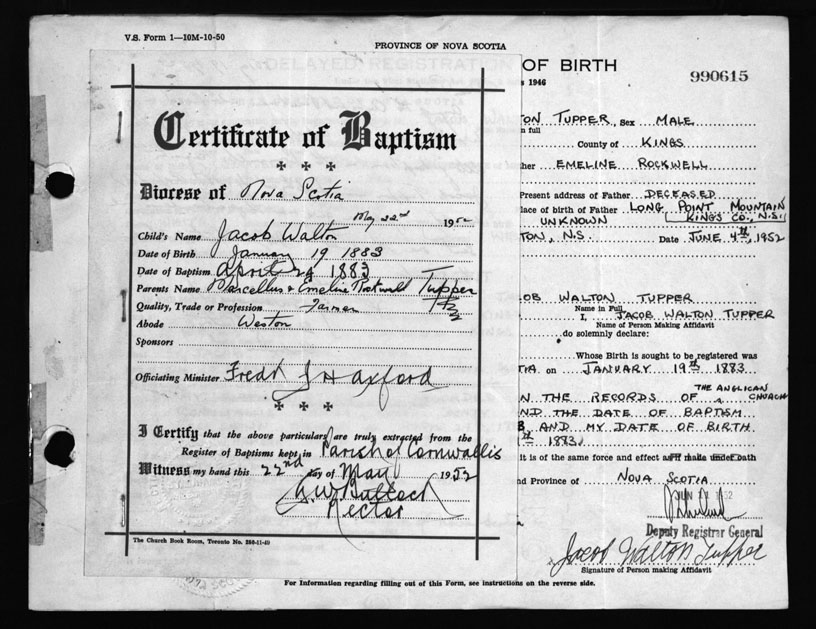 V.S. Form 1—10M-10-50
PROVINCE OF NOVA SCOTIA
DELAYED REGISTRATION OF BIRTH
1946
990615
Certificate of Baptism
Diocese of Nova Scotia
May 22nd 1952
Child's Name Jacob Walton
Date of Birth January 19 1883
Date of Baptism April 29 1883
Parents Name Marcellus & Emeline Rockwell Tupper
Quality, Trade or Profession Farmer
Abode Weston
Sponsors
Officiating Minister Fredk J H Axford
I Certify that the above particulars are truly extracted from the
Register of Baptisms kept in Parish of Cornwallis
Witness my hand this 22nd day of May 1952
Rector
The Church Book Room, Toronto No. 286-11-49
TON TUPPER, Sex MALE
n full
County of KINGS
her EMELINE ROCKWELL
Present address of Father DECEASED
lace of birth of Father LONG POINT MOUNTAIN
UNKNOWN KINGS CO., N.S.
TON, N.S. Date JUNE 4th, 1952
OB WALTON TUPPER
Name in Full
I, JACOB WALTON TUPPER
Name of Person Making Affidavit
do solemnly declare:
Whose Birth is sought to be registered was
TIA on JANUARY 19th 1883
N THE RECORDS OF THE ANGLICAN CHURCH
ND THE DATE OF BAPTISM
AND MY DATE OF BIRTH
1883
it is of the same force and effect as if made under oath
nd Province of NOVA SCOTIA
Deputy Registrar General
Jacob Walton Tupper
Signature of Person making Affidavit
For Information regarding filling out of this Form, see instructions on the reverse side.